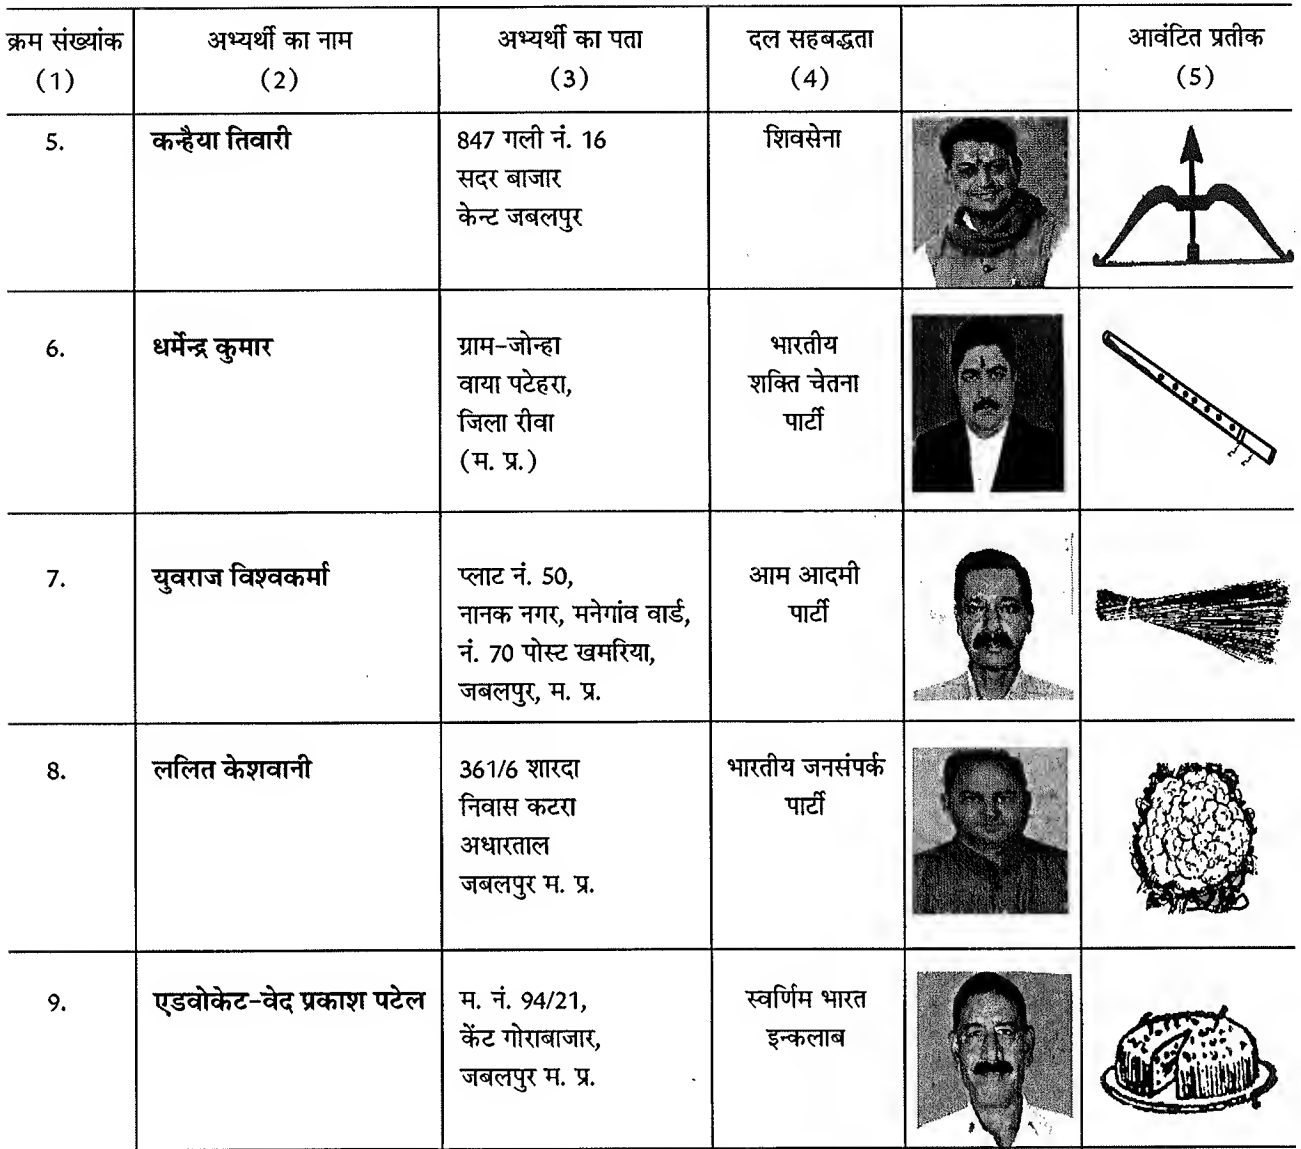 क्रम संख्यांक
(1)
अभ्यर्थी का नाम
(2)
अभ्यर्थी का पता
(3)
दल सहबद्धता
(4)
आवंटित प्रतीक
(5)
5.
कन्हैया तिवारी
847 गली नं. 16
सदर बाजार
केन्ट जबलपुर
शिवसेना
6.
धर्मेन्द्र कुमार
ग्राम-जोन्हा
वाया पटेहरा,
जिला रीवा
(म. प्र.)
भारतीय
शक्ति चेतना
पार्टी
7.
युवराज विश्वकर्मा
प्लाट नं. 50,
नानक नगर, मनेगांव वार्ड,
नं. 70 पोस्ट खमरिया,
जबलपुर, म. प्र.
आम आदमी
पार्टी
8.
ललित केशवानी
361/6 शारदा
निवास कटरा
अधारताल
जबलपुर म. प्र.
भारतीय जनसंपर्क
पार्टी
9.
एडवोकेट-वेद प्रकाश पटेल
म. नं. 94/21,
केंट गोराबाजार,
जबलपुर म. प्र.
स्वर्णिम भारत
इन्कलाब